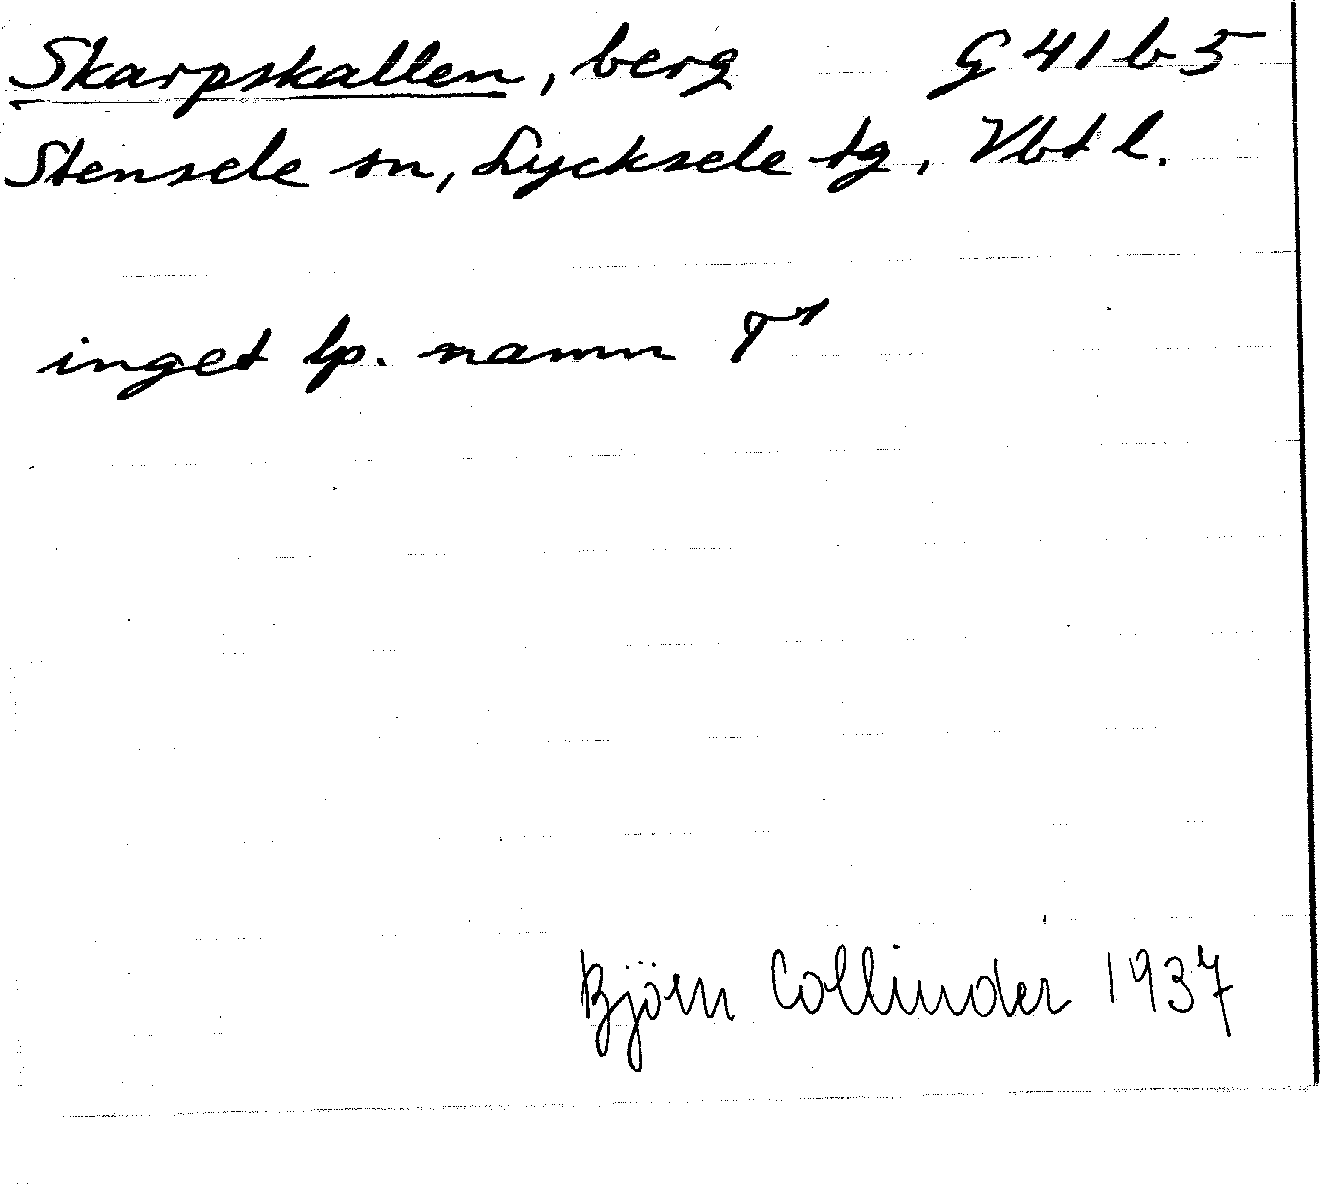 Skarpskallen, berg G 41 b 5
Stensele sn, Lycksele tg, Vbt l.
inget lp. namn T¹
Björn Collinder 1937